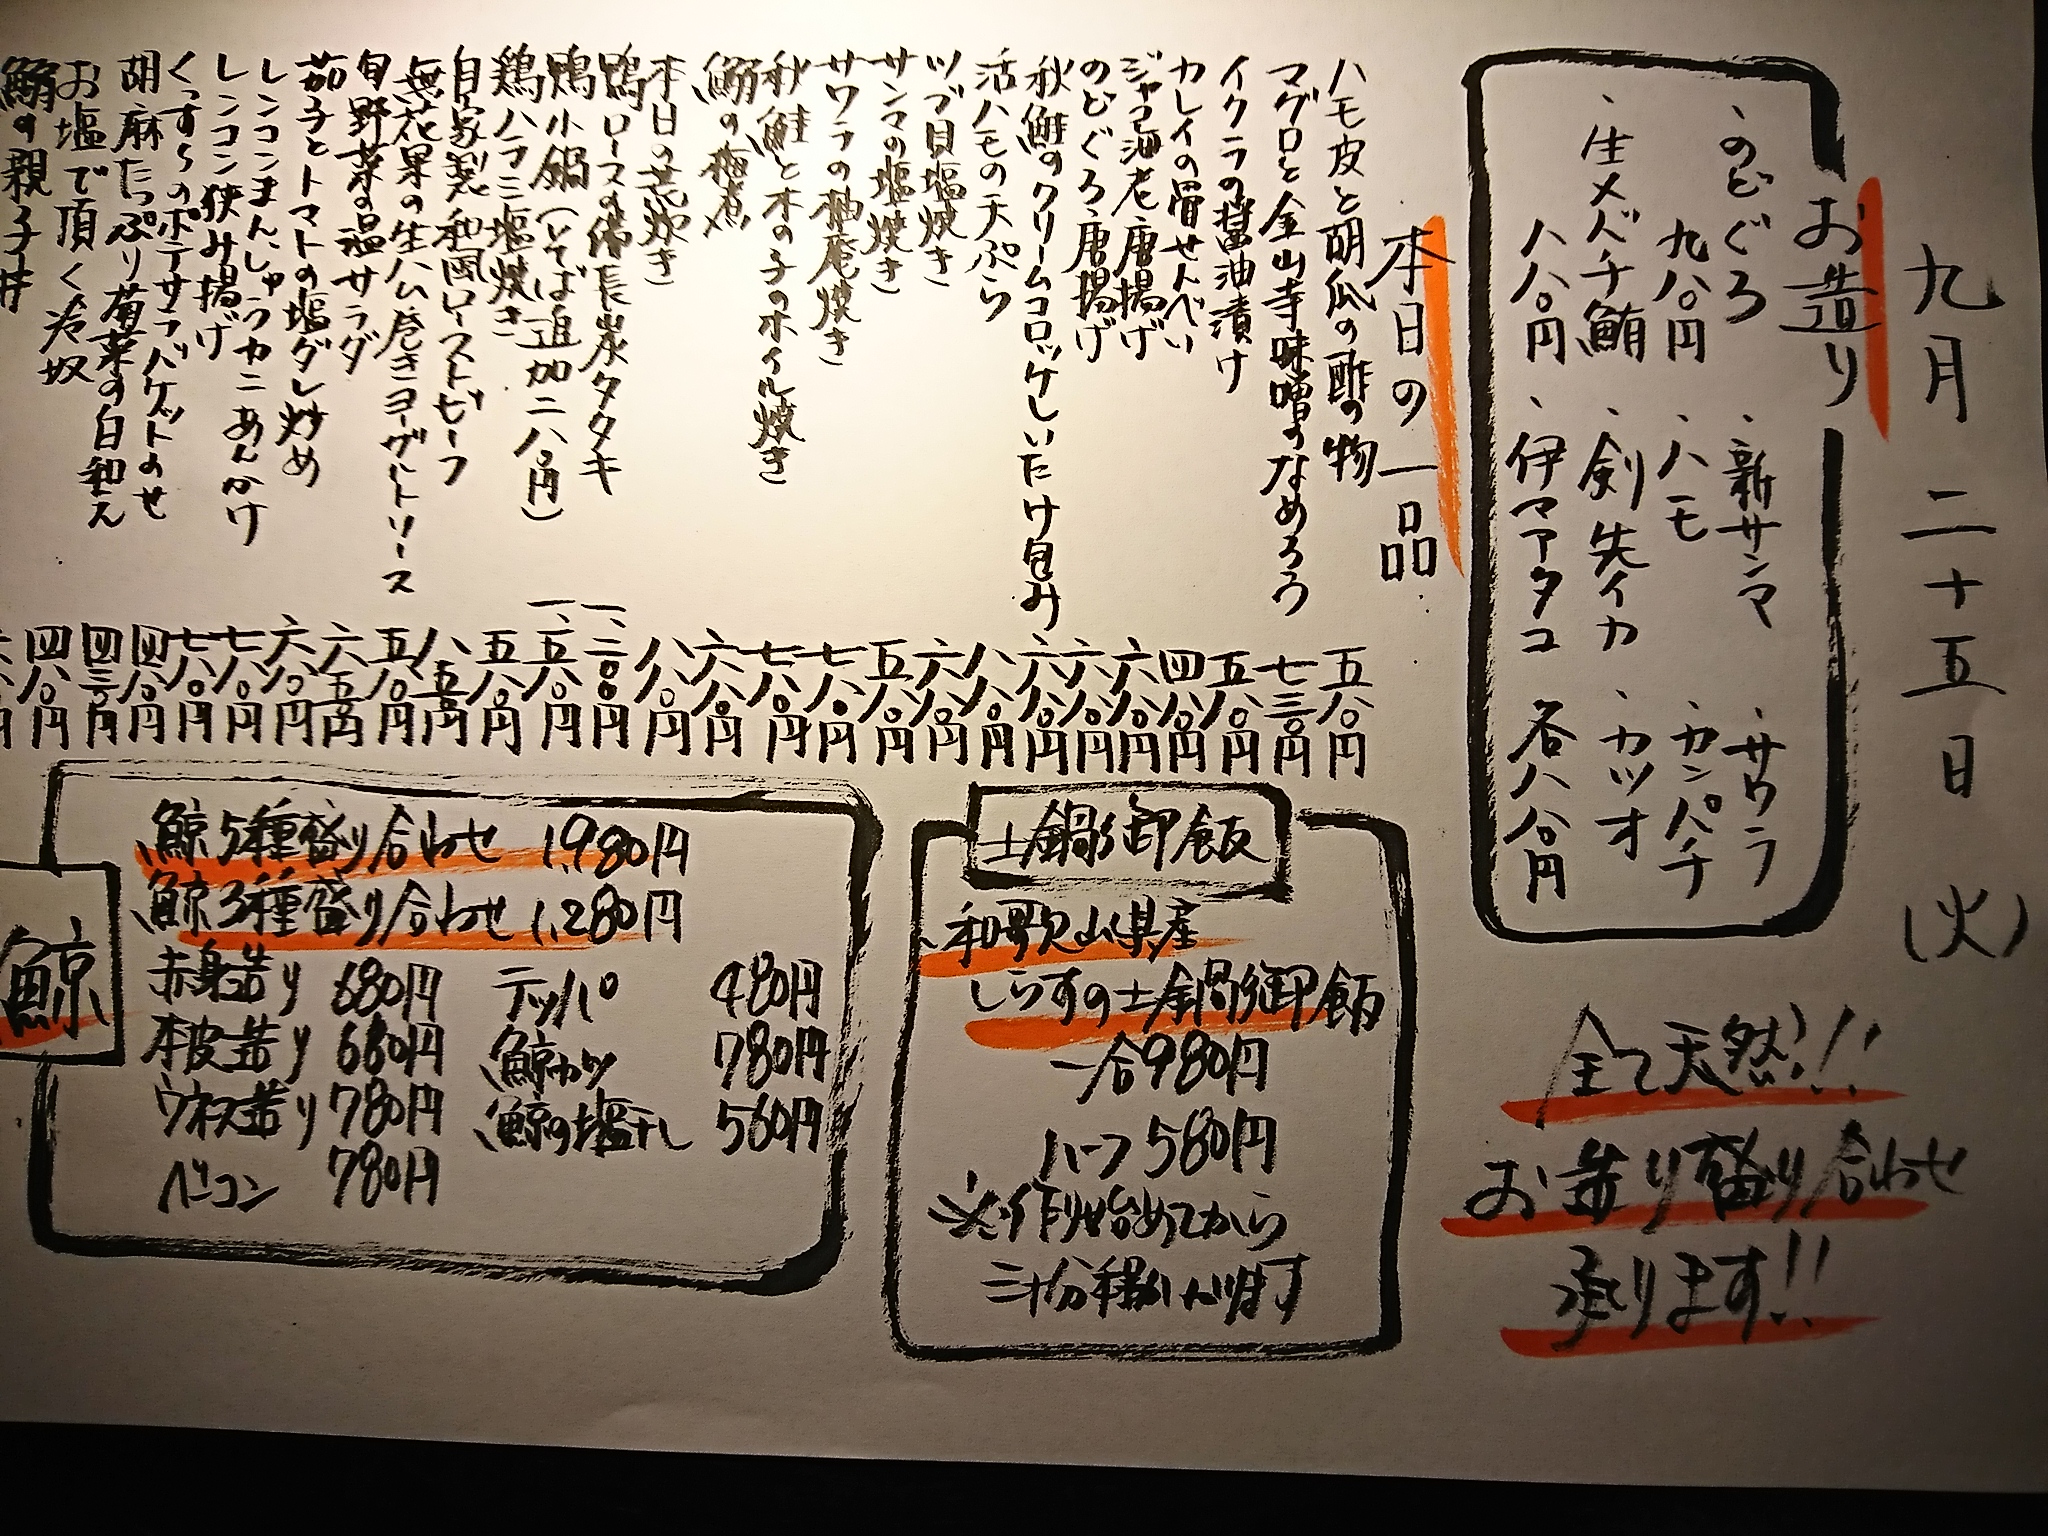 九月二十五日(火)
お造り
、のどぐろ
九八〇円
、生メバチ鮪
八八〇円
、新サンマ
、ハモ
、剣先イカ
、伊マアタコ
、サワラ
、カンパチ
、カツオ
各八八〇円
全て天然!!
お造り盛り合わせ
承ります!!
本日の一品
ハモ皮と胡瓜の酢の物 五八〇円
マグロと金山寺味噌のなめろう 七三〇円
イクラの醤油漬け 五八〇円
カレイの骨せんべい 四八〇円
ジャコ海老唐揚げ 六八〇円
のどぐろ唐揚げ 六八〇円
秋鮭のクリームコロッケしいたけ包み 六八〇円
活ハモの天ぷら 八八〇円
ツブ貝塩焼き 六八〇円
サンマの塩焼き 五八〇円
サワラの柚庵焼き 七八〇円
秋鮭と木の子のホイル焼き 七八〇円
鰯の梅煮 六八〇円
本日の荒炊き 八八〇円
鴨ロースの備長炭タタキ 一、二〇〇円
鴨小鍋(いてば追加二八〇円) 一、五八〇円
鶏ハラミ塩焼き 五八〇円
自家製和風ローストビーフ 八五〇円
無花果の生ハム巻きヨーグルトソース 五八〇円
旬野菜の温サラダ 六五〇円
茄子とトマトの塩ダレ炒め 六八〇円
レンコンまんじゅうカニあんかけ 七八〇円
レンコン挟み揚げ 七八〇円
くっすらのポテサラバケットのせ 四八〇円
胡麻たっぷり菊菜の白和え 四三〇円
お塩で頂く冷奴 四八〇円
鮪の親子丼
土鍋御飯
、和歌山県産
しらすの土鍋御飯
一合980円
ハーフ580円
※作り始めてから
三十分程かかります
鯨
、鯨5種盛り合わせ 1,980円
、鯨3種盛り合わせ 1,280円
赤身造り 680円
本皮造り 680円
ウネス造り 780円
ベーコン 780円
テッパ 480円
鯨カツ 780円
鯨の塩干し 560円